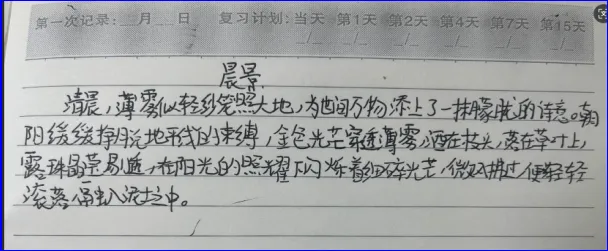 第一次记录：__月__日 复习计划：当天 第1天 第2天 第4天 第7天 第15天
晨景
清晨，薄雾似轻纱笼照大地，为世间万物添上了一抹朦胧的诗意。朝
阳缓缓挣脱地平线的束缚，金色光芒穿透薄雾，洒在枝头，落在草叶上，
露珠晶莹剔透，在阳光的照耀下闪烁着细碎光芒，微风拂过，便轻轻
滚落，融入泥土之中。